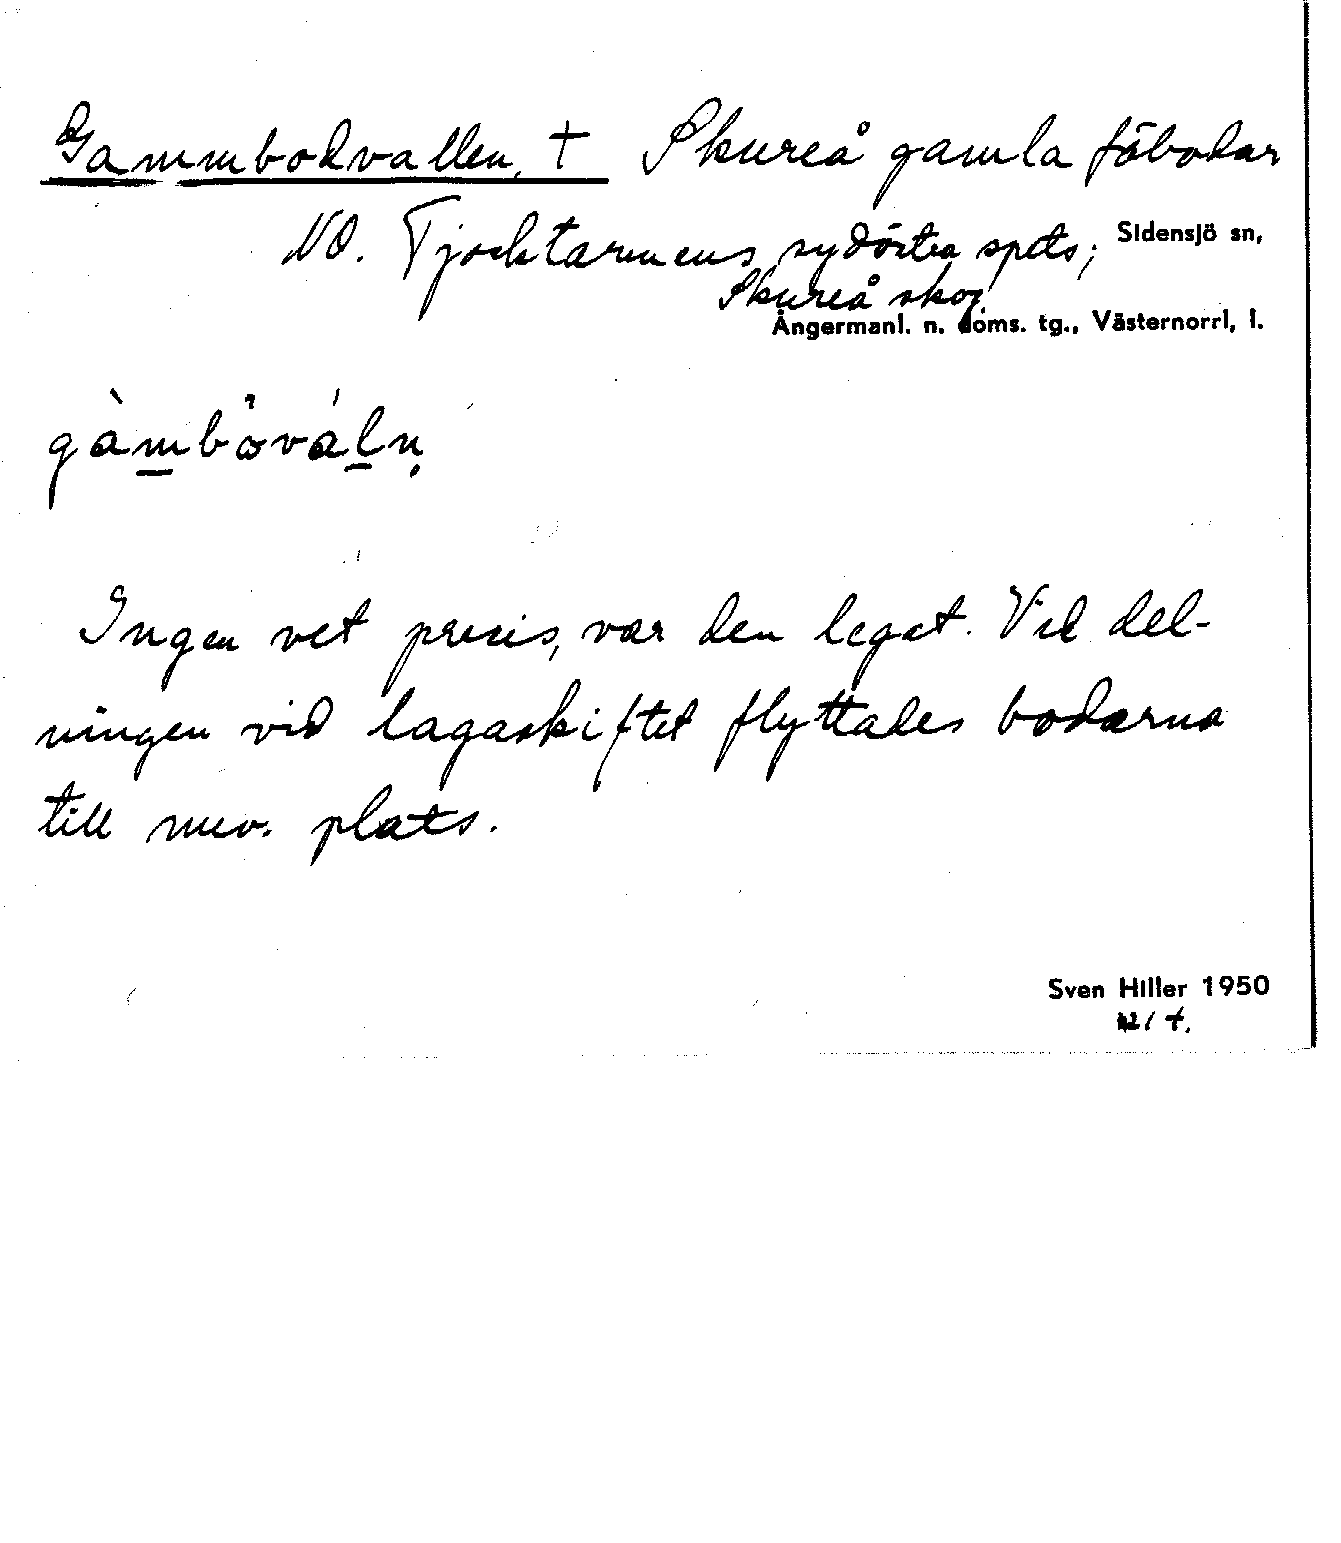 Gammbodvallen, † Skureå gamla fäbodar
NO. Tjocktarmens sydöstra spets; Sidensjö sn,
Skureå skog
Ångermanl. n. doms. tg., Västernorrl, l.
gàmbòváln̥
Ingen vet precis, var den legat. Vid del-
ningen vid lagaskiftet flyttades bodarna
till nuv. plats.
Sven Hiller 1950